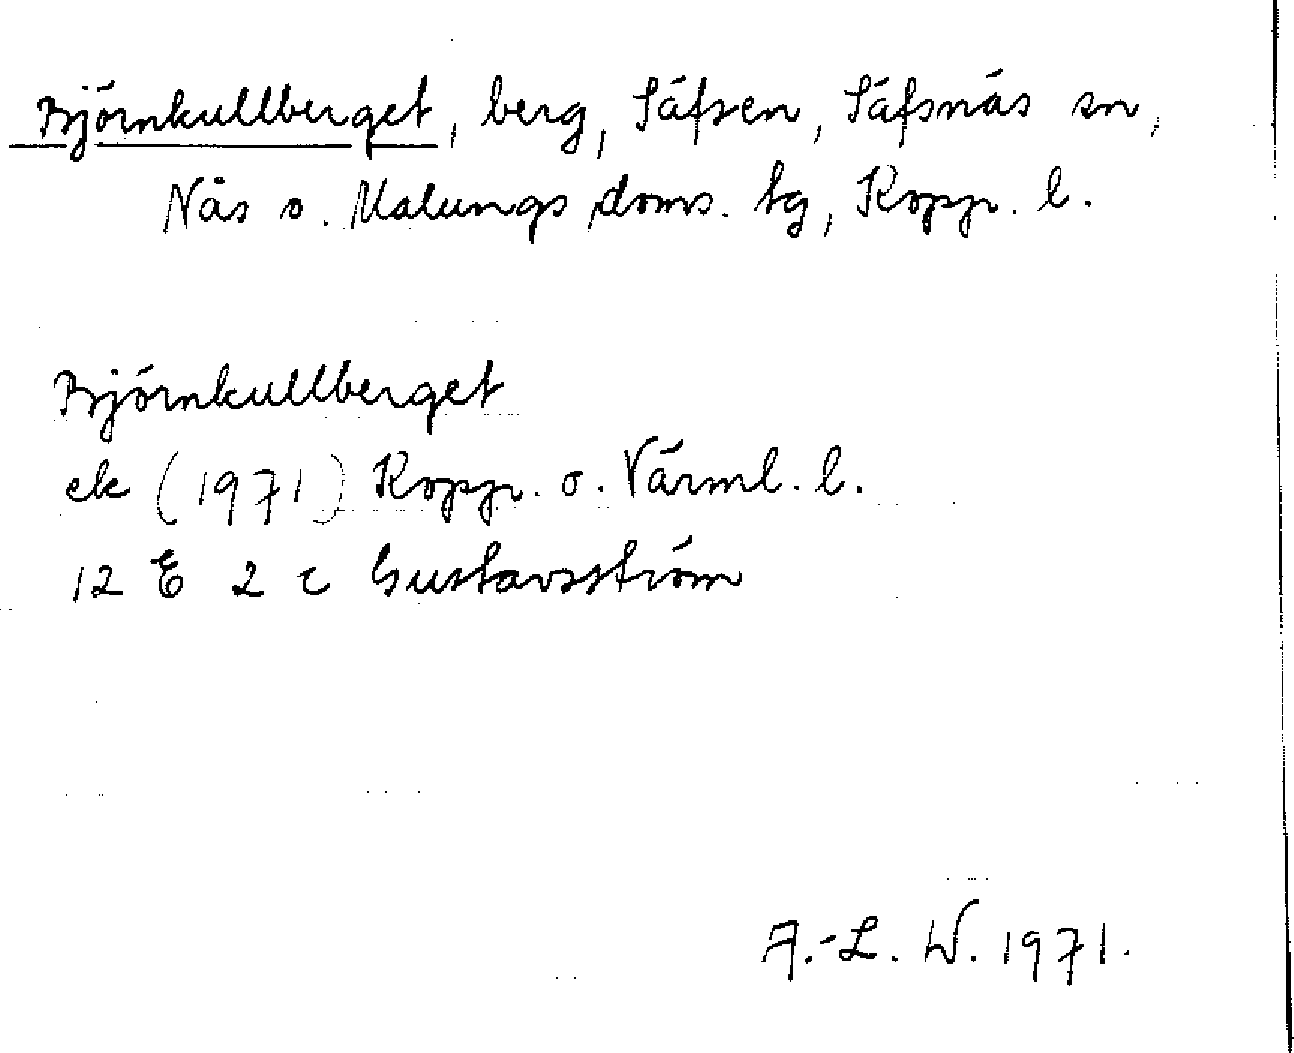 Björnkullberget, berg, Säfsen, Säfsnäs sn,
Nås o. Malungs doms. tg, Kopp. l.
Björnkullberget
ek (1971) Kopp. o. Värml. l.
12 E 2 c Gustavsström
A.-L. W. 1971.